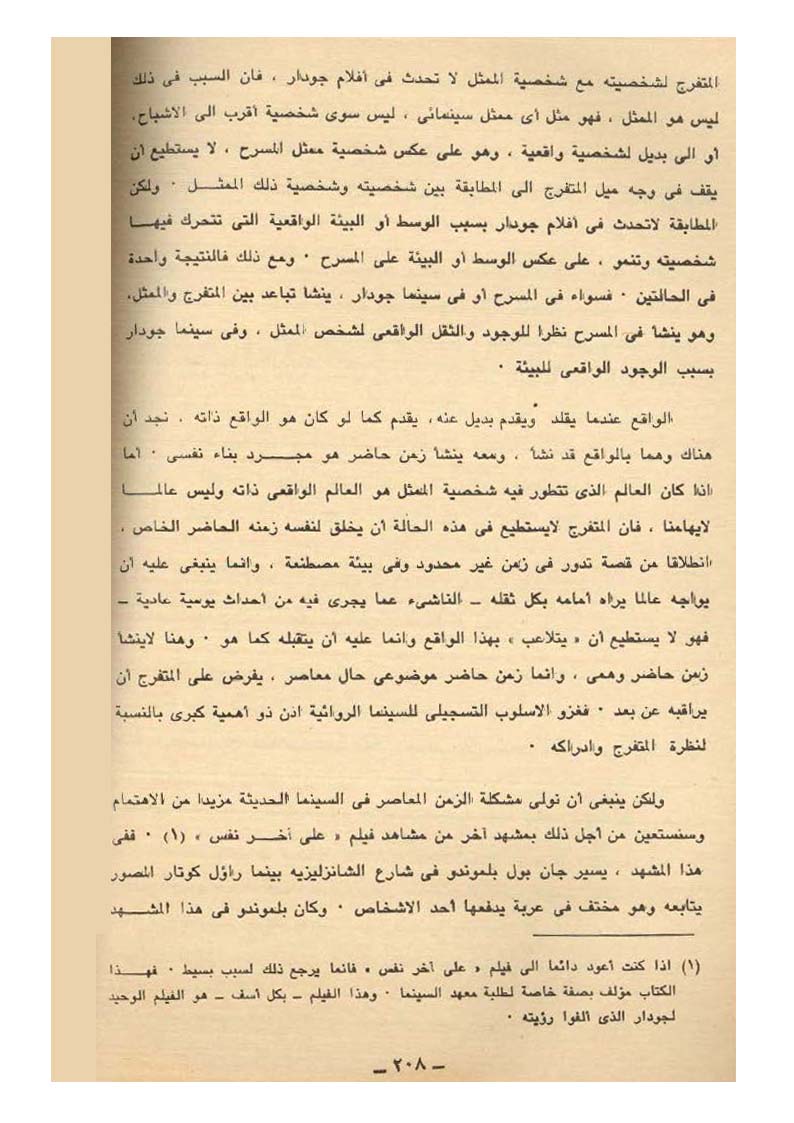 المتفرج لشخصيته مع شخصية الممثل لا تحدث فى أفلام جودار ، فان السبب فى ذلك
ليس هو الممثل ، فهو مثل أى ممثل سينمائى ، ليس سوى شخصية أقرب الى الاشباح،
أو الى بديل لشخصية واقعية ، وهو على عكس شخصية ممثل المسرح ، لا يستطيع أن
يقف فى وجه ميل المتفرج الى المطابقة بين شخصيته وشخصية ذلك الممثــل ٠ ولكن
المطابقة لاتحدث فى أفلام جودار بسبب الوسط أو البيئة الواقعية التى تتحرك فيهــا
شخصيته وتنمو ، على عكس الوسط أو البيئة على المسرح ٠ ومع ذلك فالنتيجة واحدة
فى الحالتين ٠ فسواء فى المسرح أو فى سينما جودار ، ينشأ تباعد بين المتفرج والممثل،
وهو ينشأ فى المسرح نظرا للوجود والثقل الواقعى لشخص الممثل ، وفى سينما جودار
بسبب الوجود الواقعى للبيئة ٠
الواقع عندما يقلد ويقدم بديل عنه ، يقدم كما لو كان هو الواقع ذاته ، نجد أن
هناك وهما بالواقع قد نشأ ، ومعه ينشأ زمن حاضر هو مجــرد بناء نفسى ٠ أما
اذا كان العالم الذى تتطور فيه شخصية الممثل هو العالم الواقعى ذاته وليس عالمــا
لايهامنا ، فان المتفرج لايستطيع فى هذه الحالة أن يخلق لنفسه زمنه الحاضر الخاص ،
انطلاقا من قصة تدور فى زمن غير محدود وفى بيئة مصطنعة ، وانما ينبغى عليه أن
يواجه عالما يراه أمامه بكل ثقله ــ الناشىء عما يجرى فيه من أحداث يومية عادية ــ
فهو لا يستطيع أن « يتلاعب » بهذا الواقع وانما عليه أن يتقبله كما هو ٠ وهنا لاينشأ
زمن حاضر وهمى ، وانما زمن حاضر موضوعى حال معاصر ، يفرض على المتفرج أن
يراقبه عن بعد ٠ فغزو الاسلوب التسجيلى للسينما الروائية اذن ذو أهمية كبرى بالنسبة
لنظرة المتفرج وادراكه ٠
ولكن ينبغى أن نولى مشكلة الزمن المعاصر فى السينما الحديثة مزيدا من الاهتمام
وسنستعين من أجل ذلك بمشهد آخر من مشاهد فيلم « على آخــر نفس » (١) ٠ ففى
هذا المشهد ، يسير جان بول بلموندو فى شارع الشانزليزيه بينما راؤل كوتار المصور
يتابعه وهو مختف فى عربة يدفعها أحد الاشخاص ٠ وكان بلموندو فى هذا المشــهد
(١) اذا كنت أعود دائما الى فيلم « على آخر نفس » فانما يرجع ذلك لسبب بسيط ٠ فهــذا
الكتاب مؤلف بصفة خاصة لطلبة معهد السينما ٠ وهذا الفيلم ــ بكل أسف ــ هو الفيلم الوحيد
لجودار الذى ألفوا رؤيته ٠
ــ ٢٠٨ ــ